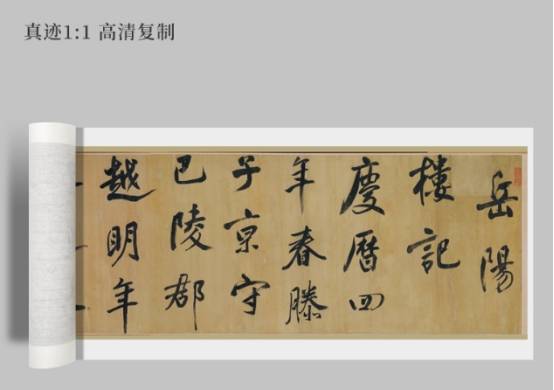 真迹1:1 高清复制
岳陽
樓記
慶曆四
年春滕
子京守
巴陵郡
越明年